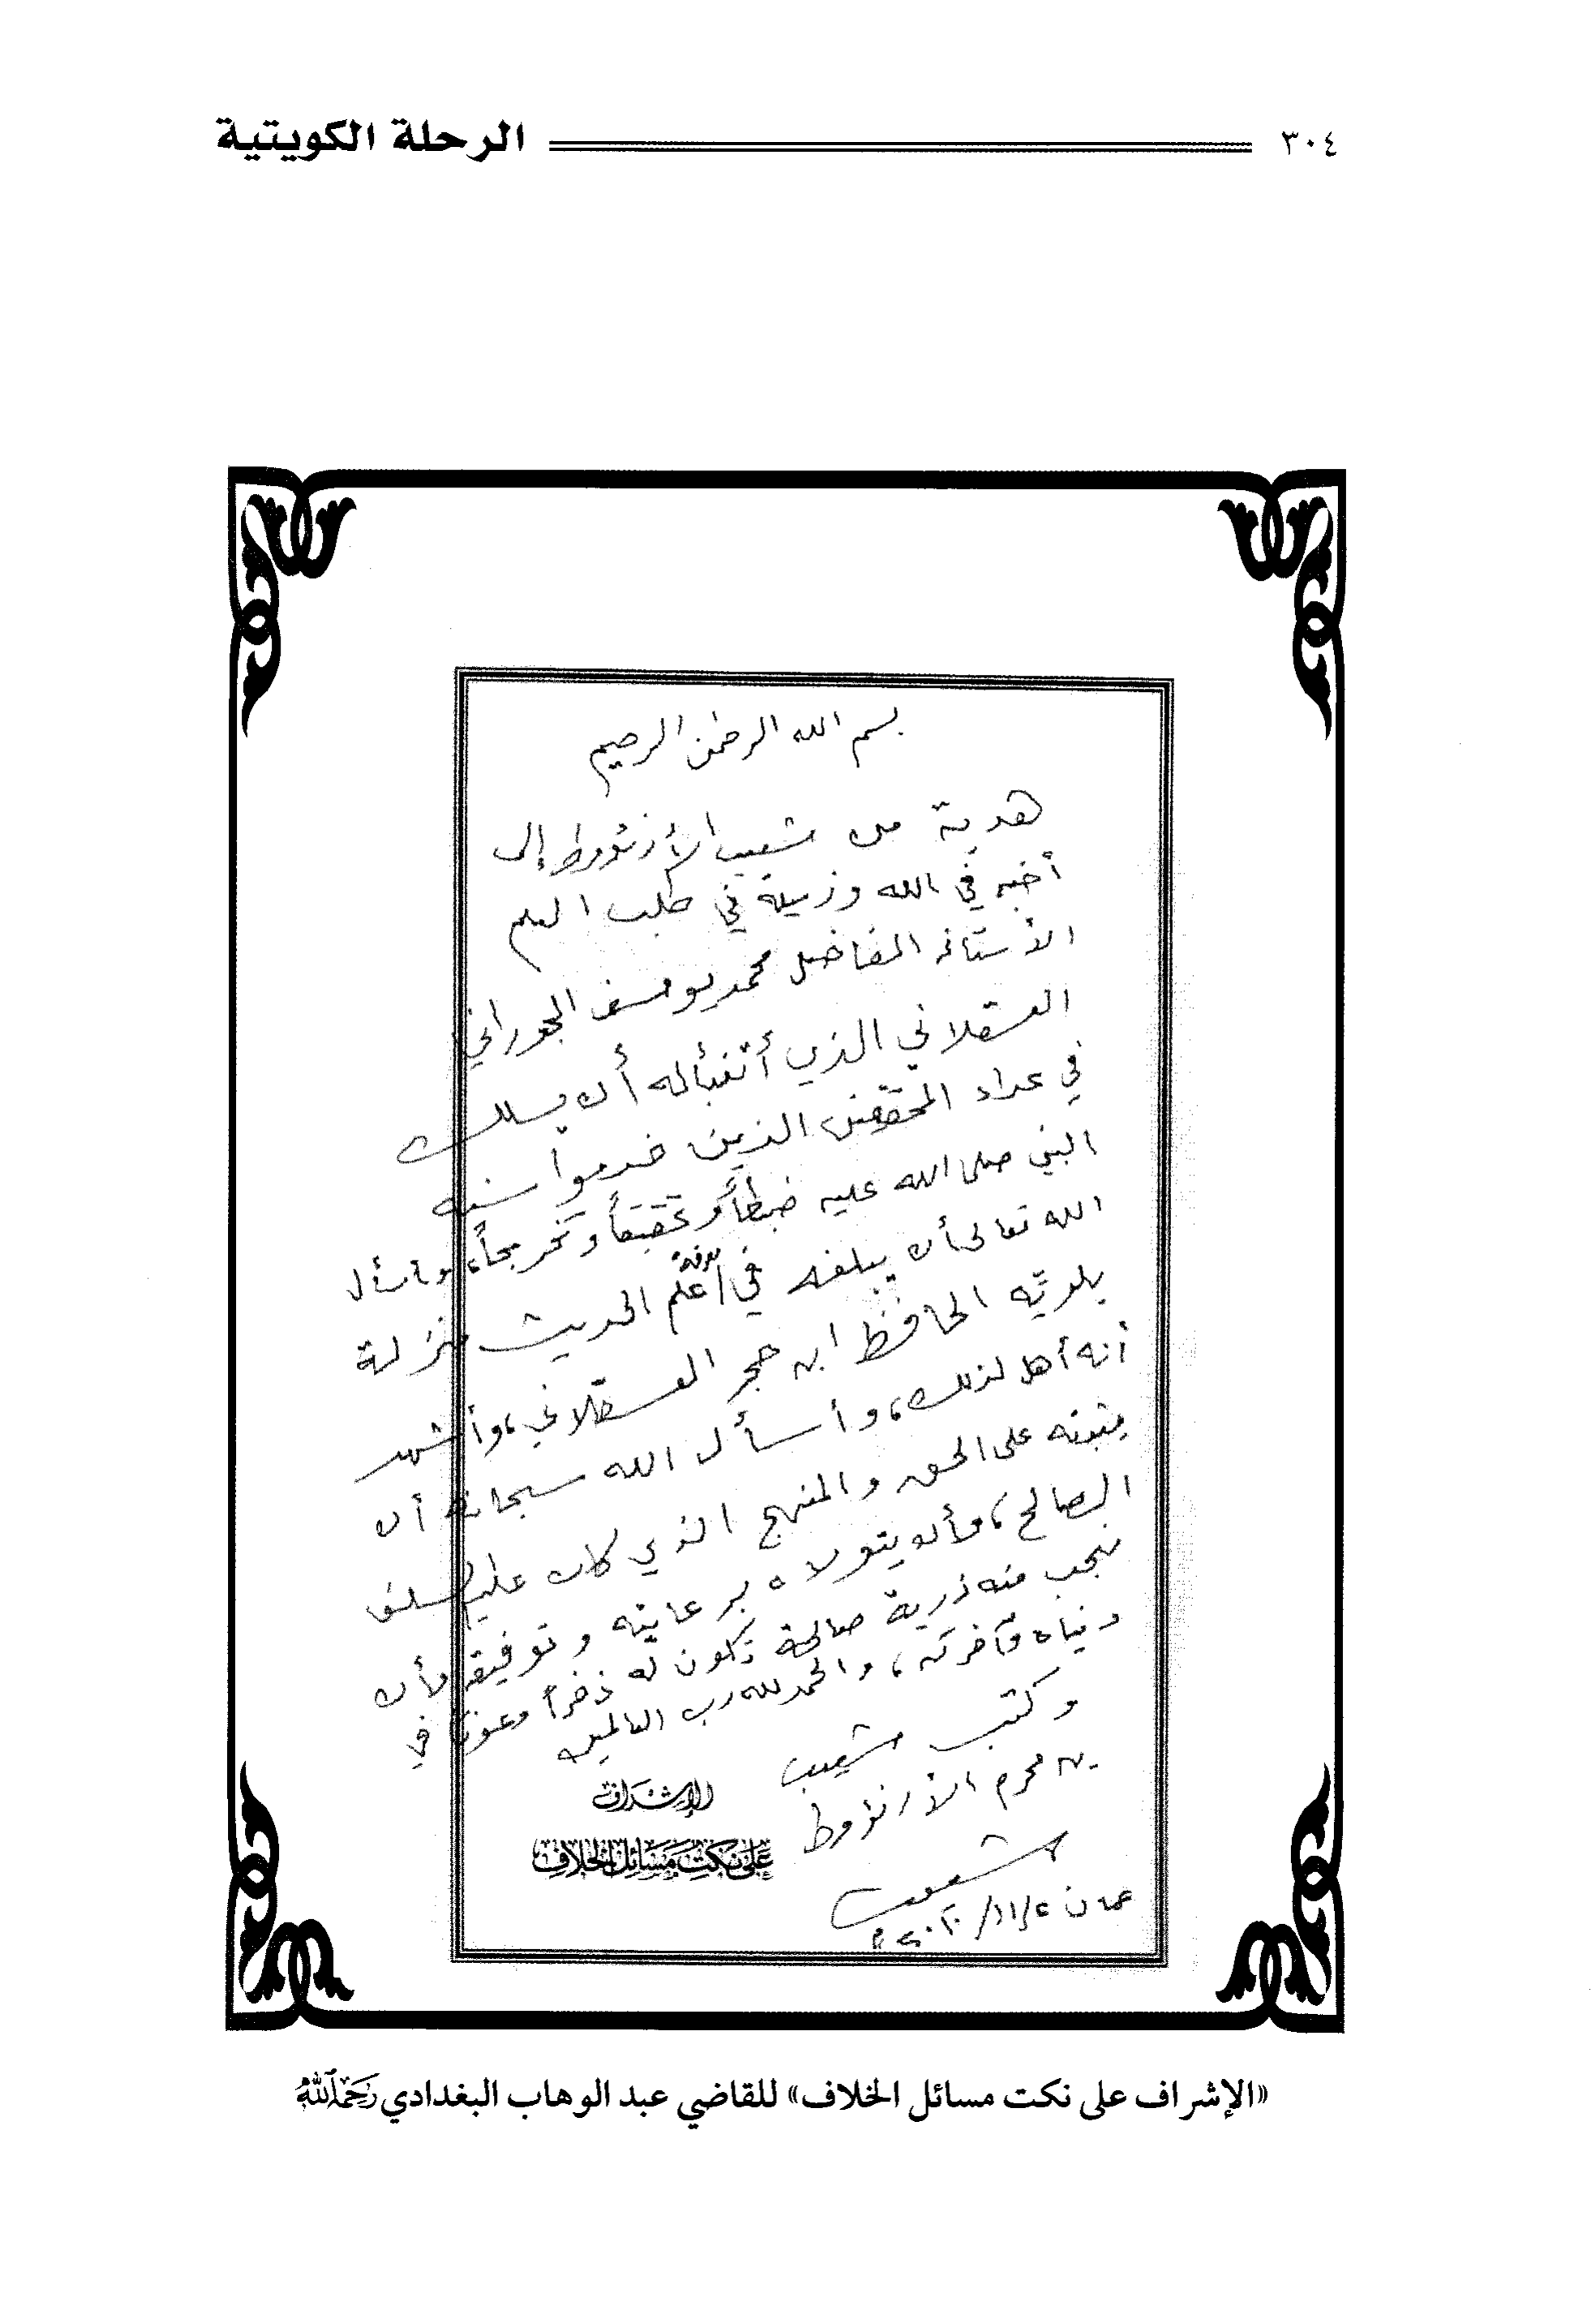 ٣٠٤ الرحلة الكويتية
بسم الله الرحمن الرحيم
هدية من شعيب الأرنؤوط إلى
أخيه في الله وزميله في طلب العلم
الأستاذ الفاضل محمد يوسف الجوراني
العسقلاني الذي أتنبأ له أن يسلك
في عداد المحققين الذين خدموا سنة
النبي صلى الله عليه ضبطاً وتحقيقاً وتخريجاً، وأسأل
الله تعالى أن يبلغه في معرفة علم الحديث منزلة
بلديّه الحافظ ابن حجر العسقلاني، وأشهد
أنه أهل لذلك، وأسأل الله سبحانه أن
يثبته على الحق والمنهج الذي كان عليه السلف
الصالح، وأن يتولاه برعايته وتوفيقه وأن
ينجب منه ذرية صالحة تكون له ذخراً وعوناً في
دنياه وآخرته، والحمد لله رب العالمين
وكتب شعيب
بن محرم الأرنؤوط
شعيب
عمان ١١/٤/
الإشراف
على نكت مسائل الخلاف
«الإشراف على نكت مسائل الخلاف» للقاضي عبد الوهاب البغدادي رحمه الله